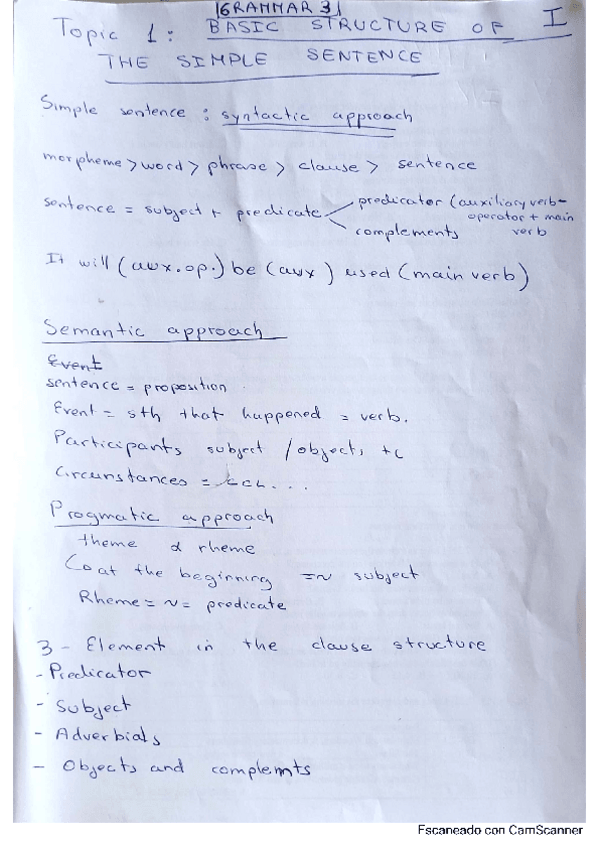 GRAMMAR 3
I
Topic 1: BASIC STRUCTURE OF
THE SIMPLE SENTENCE
Simple sentence : syntactic approach
morpheme > word > phrase > clause > sentence
sentence = subject + predicate
predicator (auxiliary verb-
operator + main
verb
complements
It will (aux. op.) be (aux) used (main verb)
Semantic approach
Event
sentence = proposition
Event = sth that happened = verb.
Participants subject / objects
Circunstances =
Pragmatic approach
theme & rheme
at the beginning =~ subject
Rheme = ~ = predicate
3 - Element in the clause structure
- Predicator
- Subject
- Adverbials
- Objects and complemts
Escaneado con CamScanner